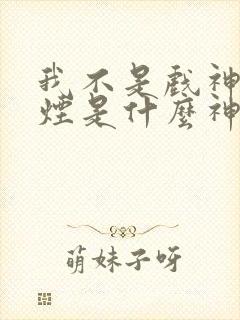 我不是戲神
煙是什麼神
萌妹子呀